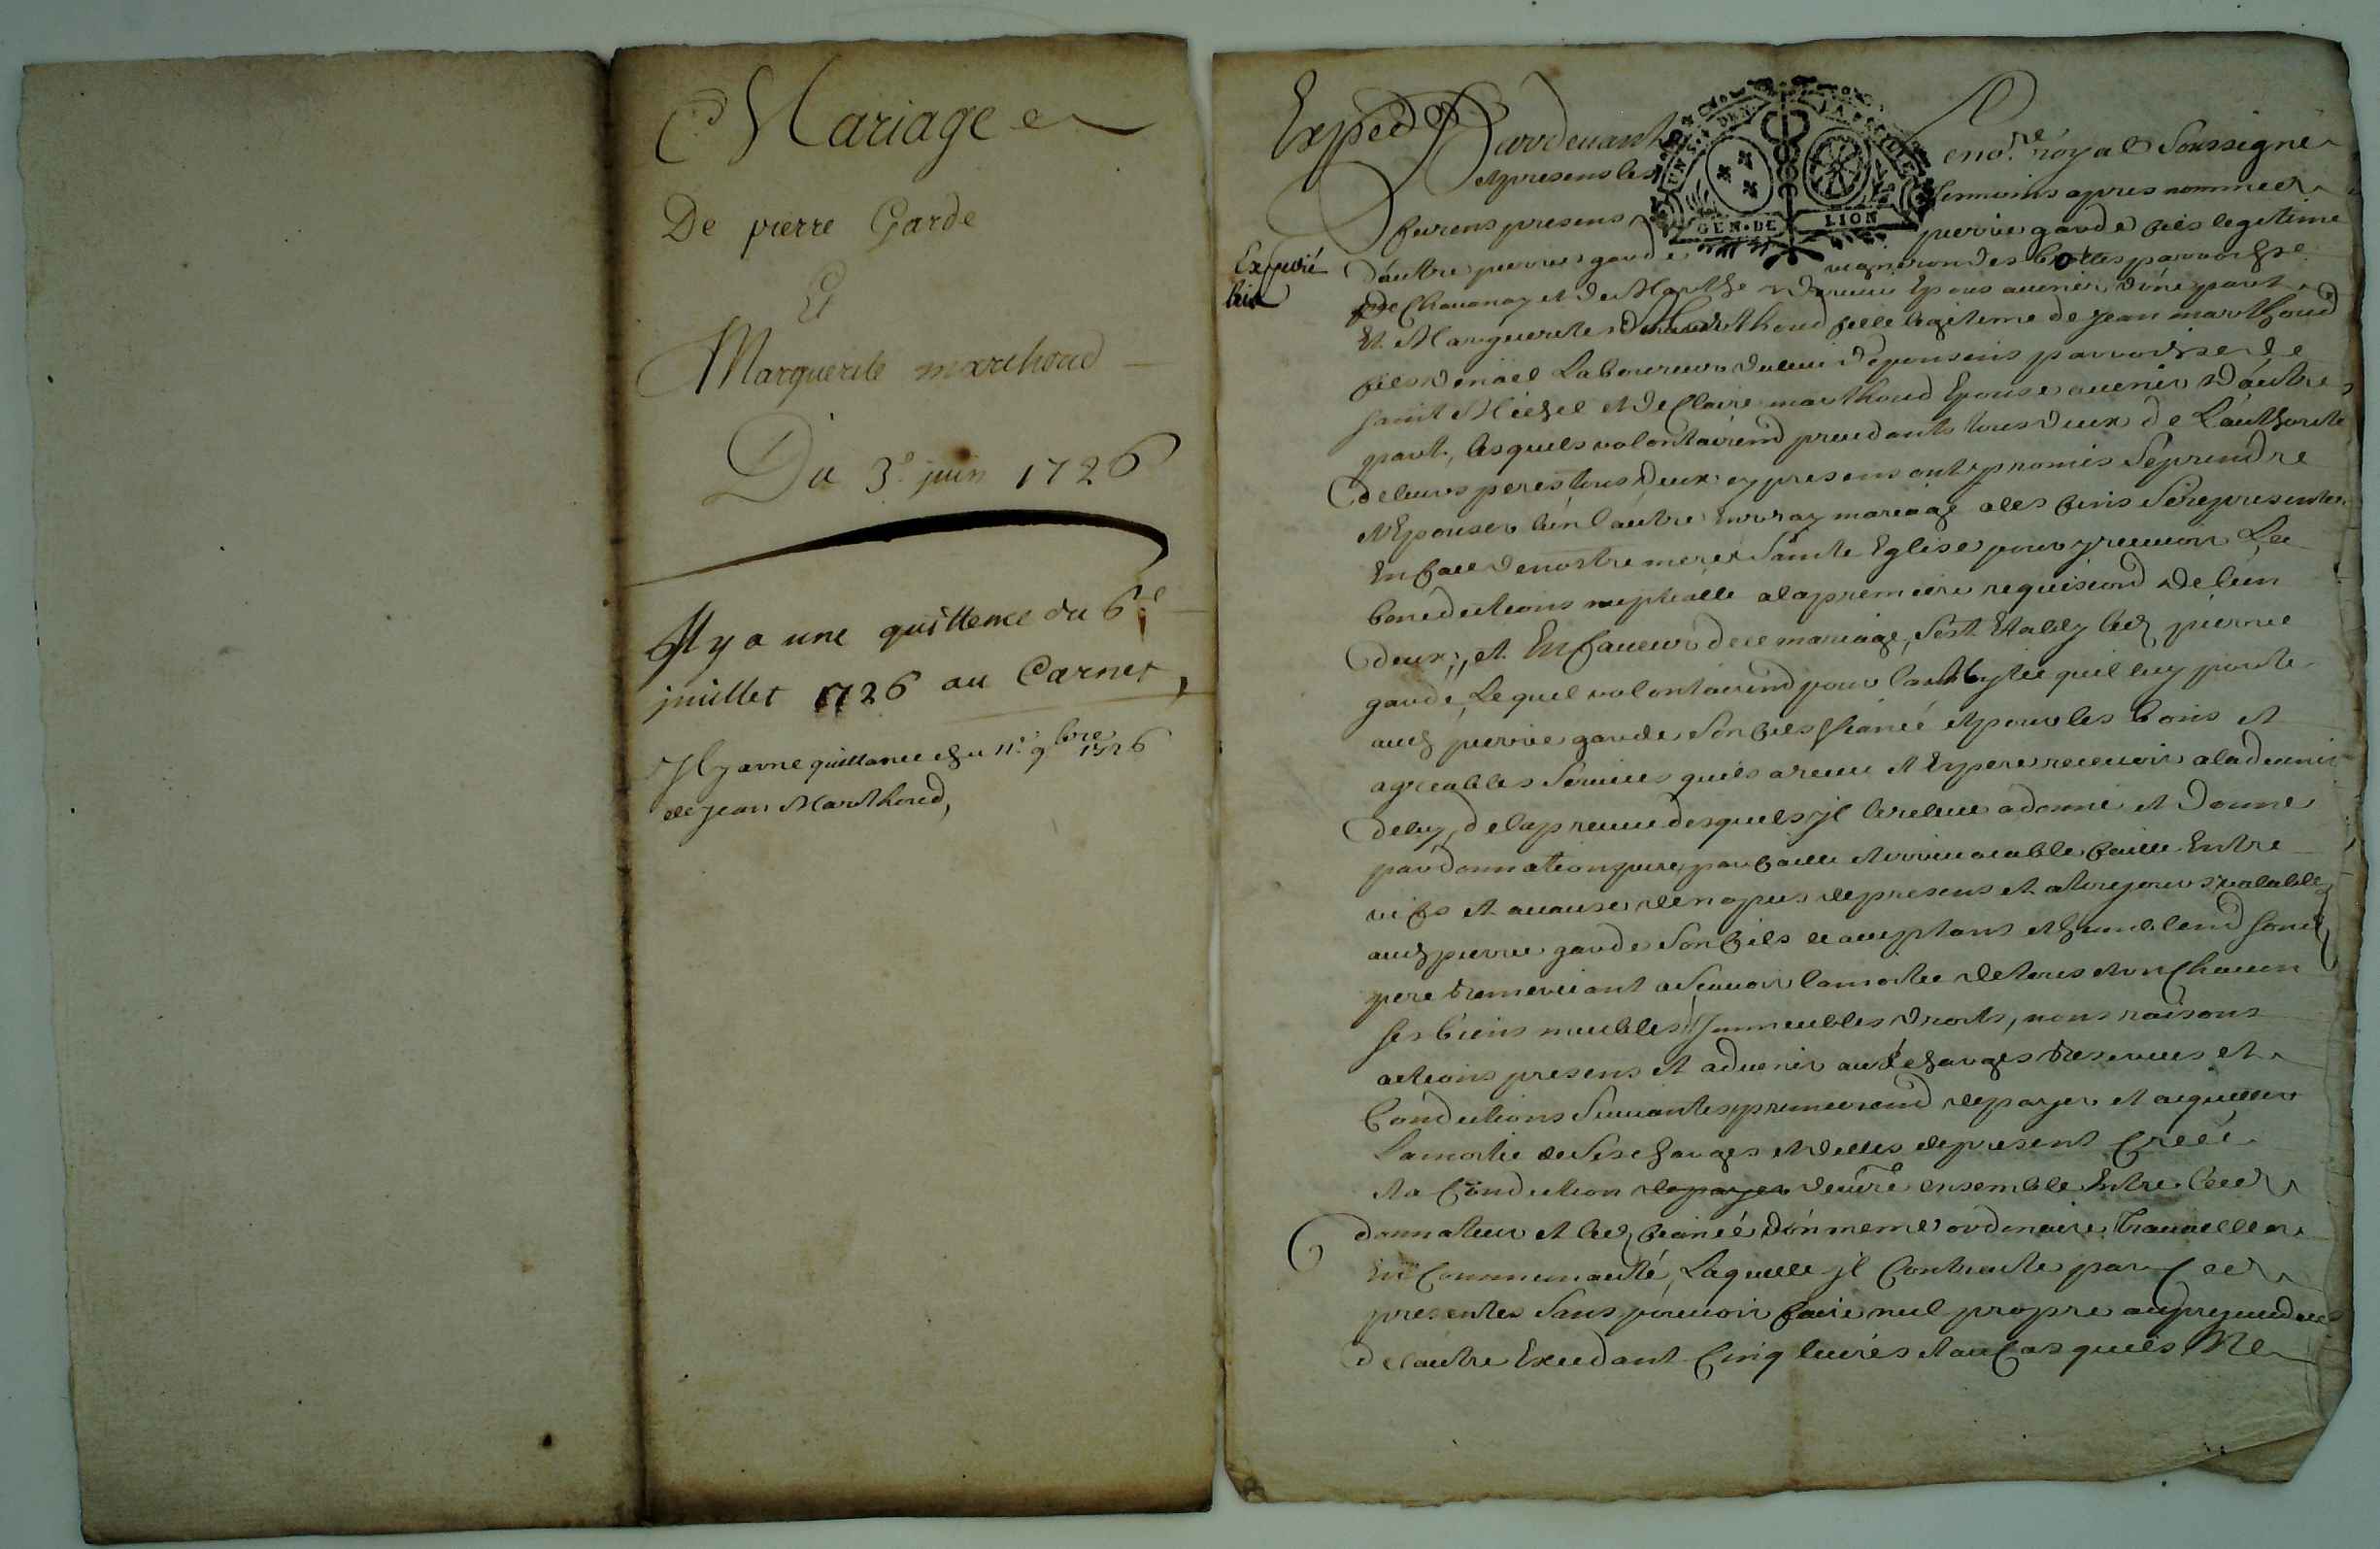 Mariage
De pierre Garde
Et
Marguerite marthoud
Du 3e juin 1726
Il y a une quittence du 6e
juillet 1726 au Carnet
Il y a vne quittance du 11e 9bre 1726
de jean Marthoud,
Exped
Pardeuant
eno.re royal Soussigné
UN S. 4 DEN.
GEN. DE LION
et presens les
temoins apres nommed
furent presens
pierre garde fils legitime
Expedié
bis
d'autre pierre garde
vigneron des
parroisse
de Chauanay et de Marthe
Epous auenir d'une part
Et Marguerite Marthoud fille legitime de jean marthoud
fils de noel Laboureur du lieu d'eponsins parroisse de
saint Michel et de Claire marthoud Epouse auenir d'autre
part, lesquels volontairemt procedants tous deux de L'authorité
de leurs peres tous deux cy presens ont promis Se prendre
et Epouser l'un l'autre En vray mariage a les fins Se representer
En face de nostre mere Sainte Eglise pour y receuoir La
benediction nuptialle a la premiere requisiond de l'un
deux, et En faueur de ce mariage, s'est Etably led pierre
garde, Lequel volontairemt pour l'amitié quil luy porte
aud pierre garde Son fils fiancé et pour les bons et
agreables Seruices quils a receu et Espere receuoir a laduenir
de luy, de la preuue desquels jl le releue a donné et Donne
par donnation pure, parfaitte et irreuocable faitte Entre
vifs et a cause de nopces des presens et a tousjours valable
aud pierre garde Son fils acceptant et humblemt sond
pere Remerciant a Sçauoir la moitié de tous et un Chacun
ses biens meubles, Jmmeubles droits, noms raisons
actions presens et aduenir aux charges Reserues et
Conditions Suiuantes, premierement de payer et acquitter
La moitié de Ses charges et dettes de present Créé
et a Condition de payer de viure ensemble Entre led
donnateur et led fiancé d'un meme ordinaire, trauailler
En Communauté, Laquelle jl Contracte par Ces
presentes Sans pouuoir faire nul propre au prejudice
de l'autre Excedant Cinq liures et au Cas quils Ne